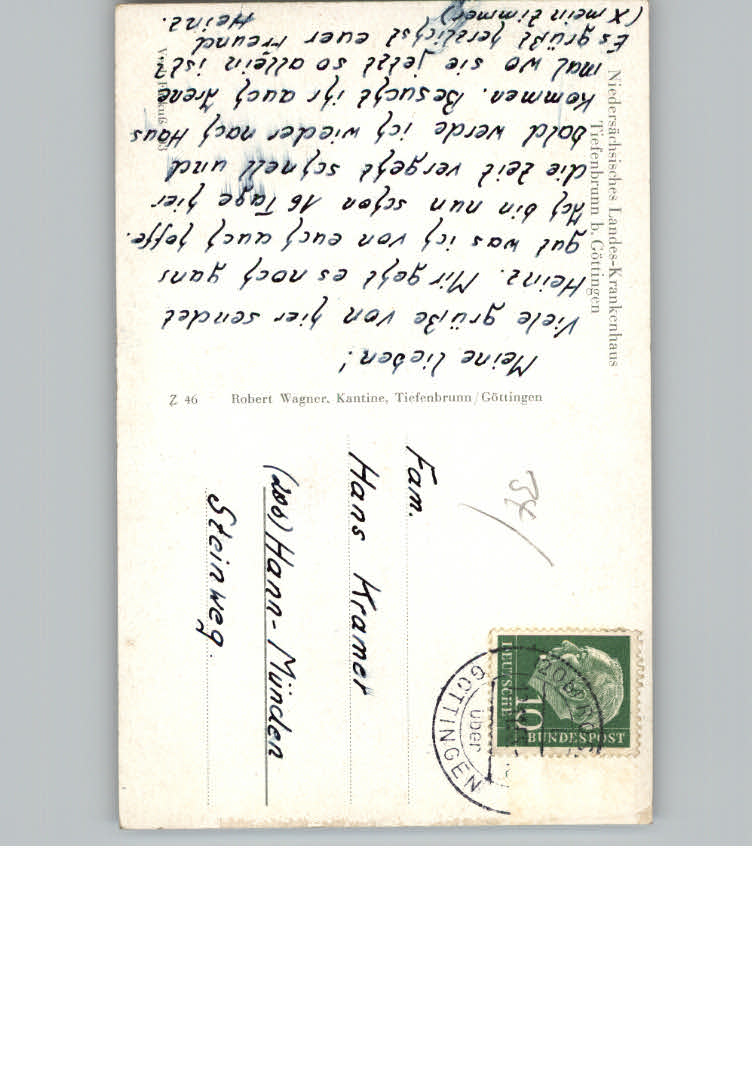 Niedersächsisches Landes-Krankenhaus
Tiefenbrunn b. Göttingen
Meine lieben!
Viele grüße von hier sendet
Heinz. Mir geht es noch gans
gut was ich von euch auch hoffe.
Ich bin nun schon 16 Tage hier
die Zeit vergeht schnell und
bald werde ich wieder nach Haus
kommen. Besucht ihr auch Irene
mal wo sie jetzt so allein ist?
Es grüßt herzlichst euer Freund
(X mein Zimmer) Heinz.
Z 46 Robert Wagner, Kantine, Tiefenbrunn/Göttingen
Fam.
Hans Kramer
(20b) Hann-Münden
Steinweg.
DEUTSCHE
BUNDESPOST
10
über
GÖTTINGEN